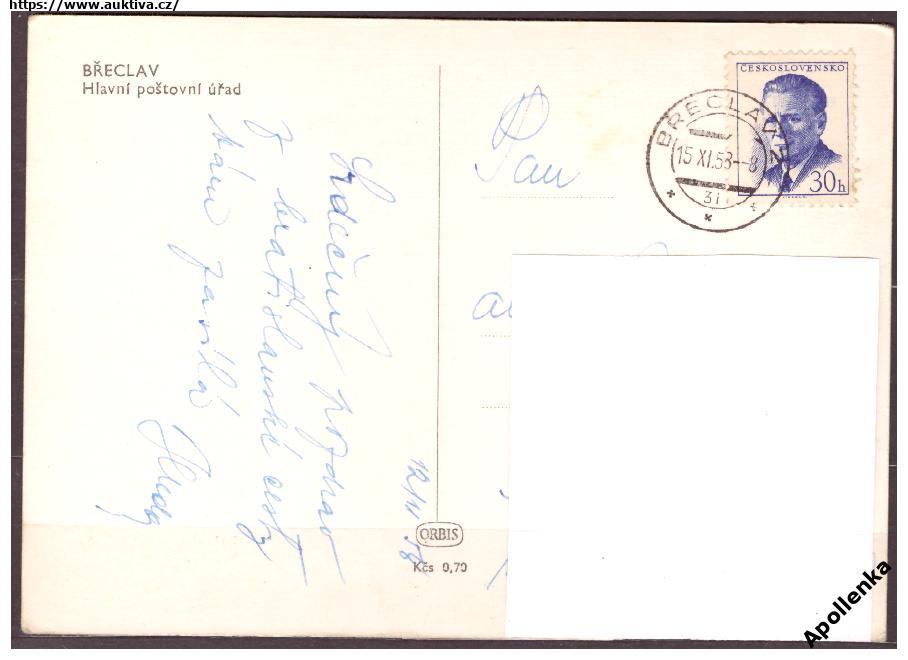 https://www.auktiva.cz/
BŘECLAV
Hlavní poštovní úřad
Srdečný pozdrav
z bratislavské cesty
Vám zasílá
12/11 58
ORBIS
Kčs 0,70
Pan
ČESKOSLOVENSKO
30h
BŘECLAV 2
15 XI. 58 - 8
Apollenka